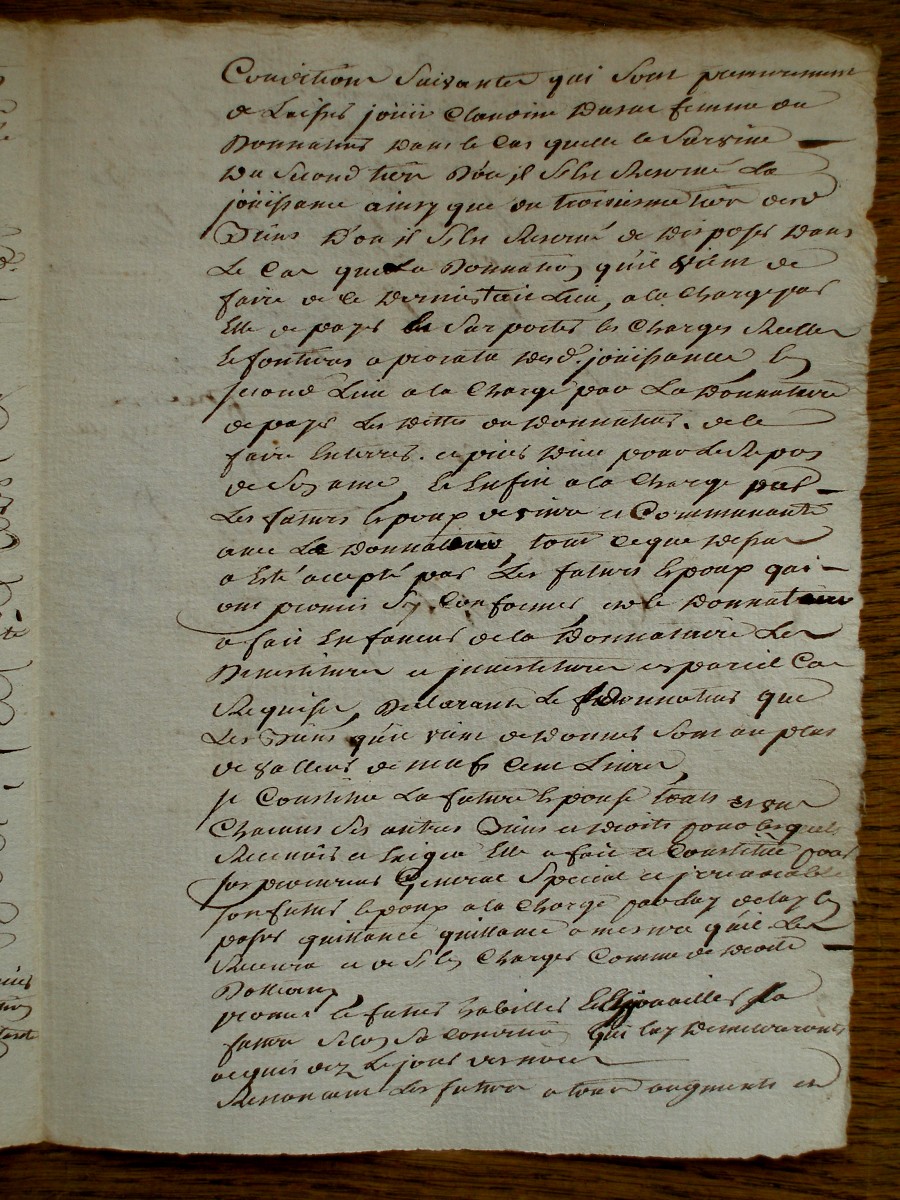 Conditions Suivantes qui Sont premierement
de Laisser jouir Claudine femme du
Donnateur dans le Cas quelle le Survive
du Second tiers Dou il Sest Reservé La
jouissance ainsy que du troisieme tiers desd
Biens Dou il Sest Reservé de disposer dans
Le Cas que La Donnation quil vient de
faire de ce dernier tait Lieu, a la Charge par
Elle de payer Supporter les Charges Reelles
et fontieres a prorata desd. jouissances En
second Lieu a la Charge par La Donnataire
de payer Les dettes du Donnateur. de le
faire Enterrer. et prier Dieu pour Le Repos
de Son ame, Et Enfin a la Charge par
Les futurs Epoux de vivre en Communauté
avec Le Donnateur, tout Ceque dessus
a Eté accepté par Les futurs Epoux qui
ont promis Sy Conformer et le Donnateur
a fait En faveur de la Donnataire Les
Devestitures et jnvestitures en pareil Cas
Requises, Declarant Le Donnateur que
Les Biens quil vient de Donner Sont au plus
de valleur de neuf Cent Livres,
se Constitue La future Epouse touts et un
Chacuns Ses autres Biens et droits pour lesquels
Recevoir et Exiger Elle a fait et Constitué pour
son procureur General Special et jrrevocable
son futur Epoux a la Charge par Luy de Luy En
passer quittance quittance a mesure quil Les
Recevra et de S'En Charger Comme de droit
promet le futur habiller Et Enjoailler Sa
future Selon Sa Condition qui Luy Demeureront
acquis dez Le jour des noces
Renoncant Les futurs a tous augments et